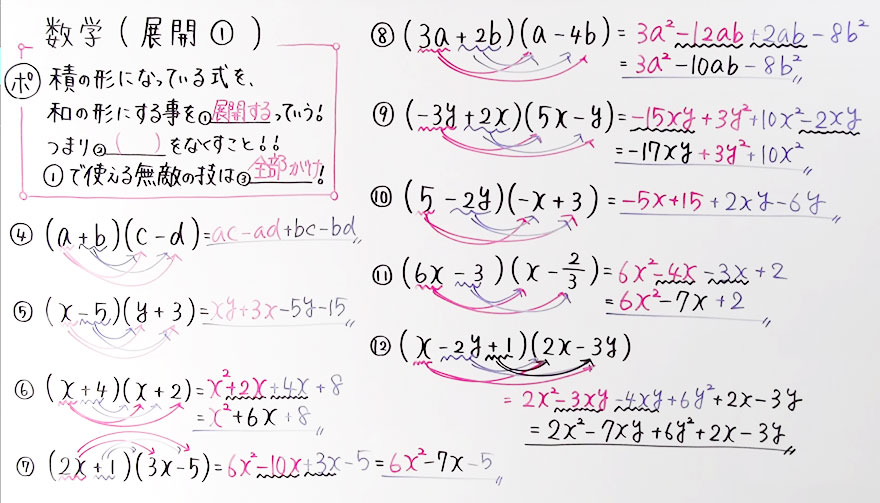 数学(展開①)
ポ 積の形になっている式を、
和の形にする事を①展開するっていう!
つまり②( )をなくすこと!!
①で使える無敵の技は③全部かけ!
④ (a+b)(c-d)=ac-ad+bc-bd
⑤ (x-5)(y+3)=xy+3x-5y-15
⑥ (x+4)(x+2)=x²+2x+4x+8
=x²+6x+8
⑦ (2x+1)(3x-5)=6x²-10x+3x-5=6x²-7x-5
⑧ (3a+2b)(a-4b)=3a²-12ab+2ab-8b²
=3a²-10ab-8b²
⑨ (-3y+2x)(5x-y)=-15xy+3y²+10x²-2xy
=-17xy+3y²+10x²
⑩ (5-2y)(-x+3)=-5x+15+2xy-6y
⑪ (6x-3)(x-2/3)=6x²-4x-3x+2
=6x²-7x+2
⑫ (x-2y+1)(2x-3y)
=2x²-3xy-4xy+6y²+2x-3y
=2x²-7xy+6y²+2x-3y